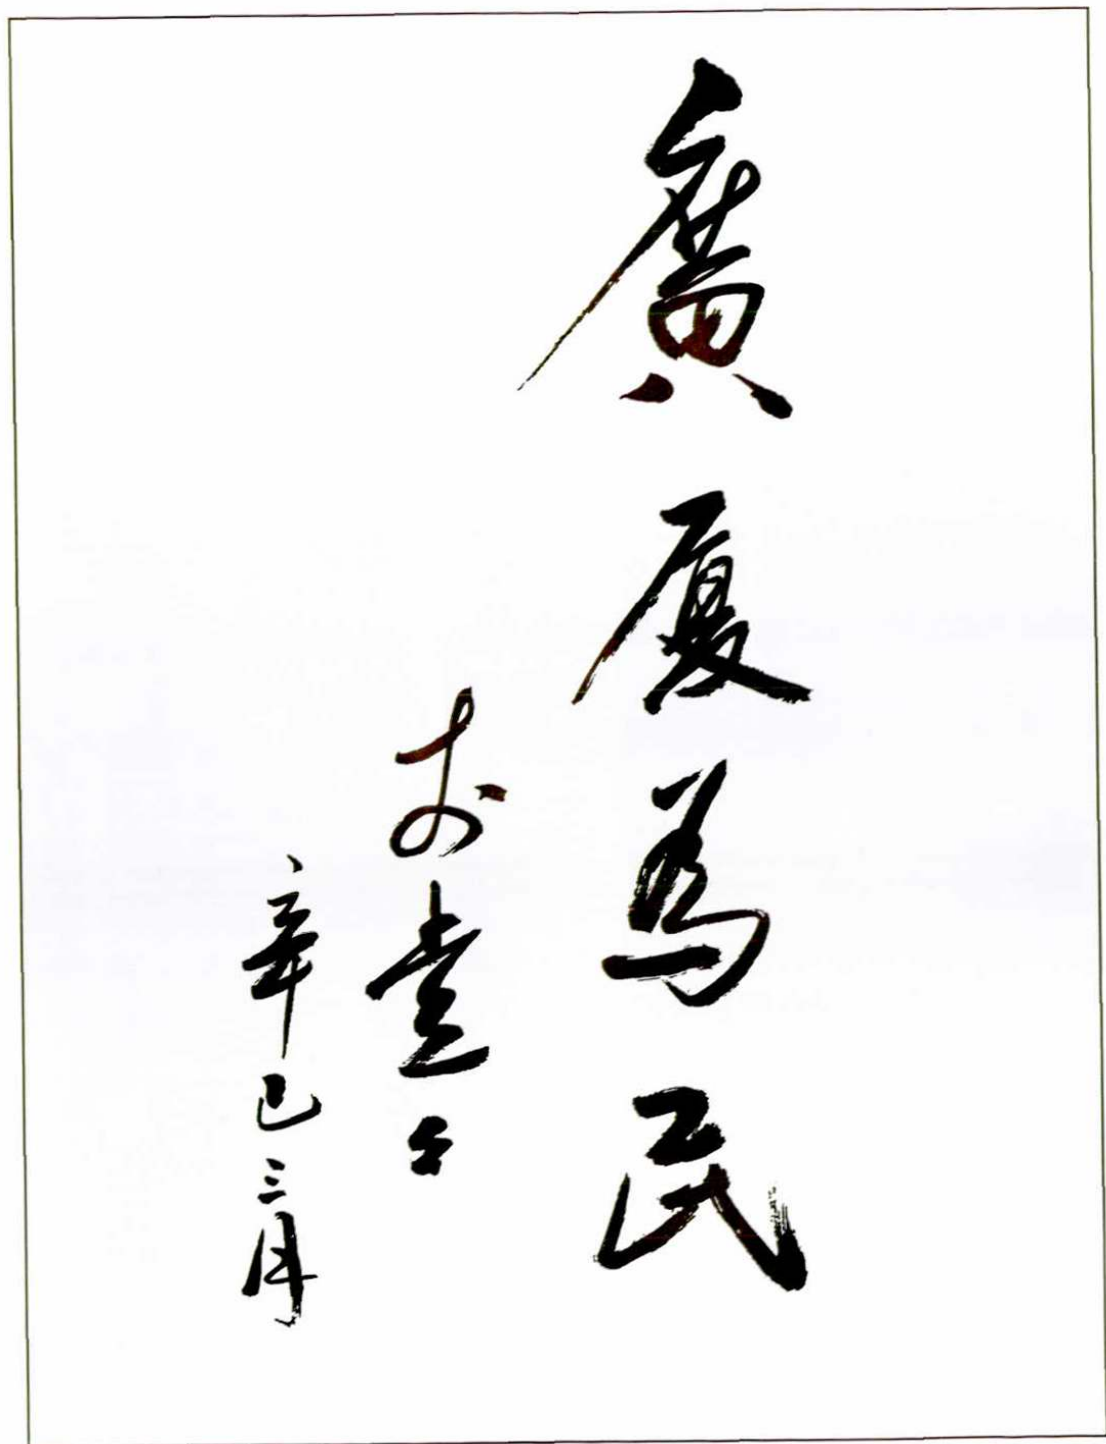 廣厦為民
辛巳三月